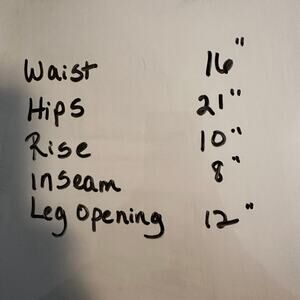 Waist 16"
Hips 21"
Rise 10"
Inseam 8"
Leg Opening 12"